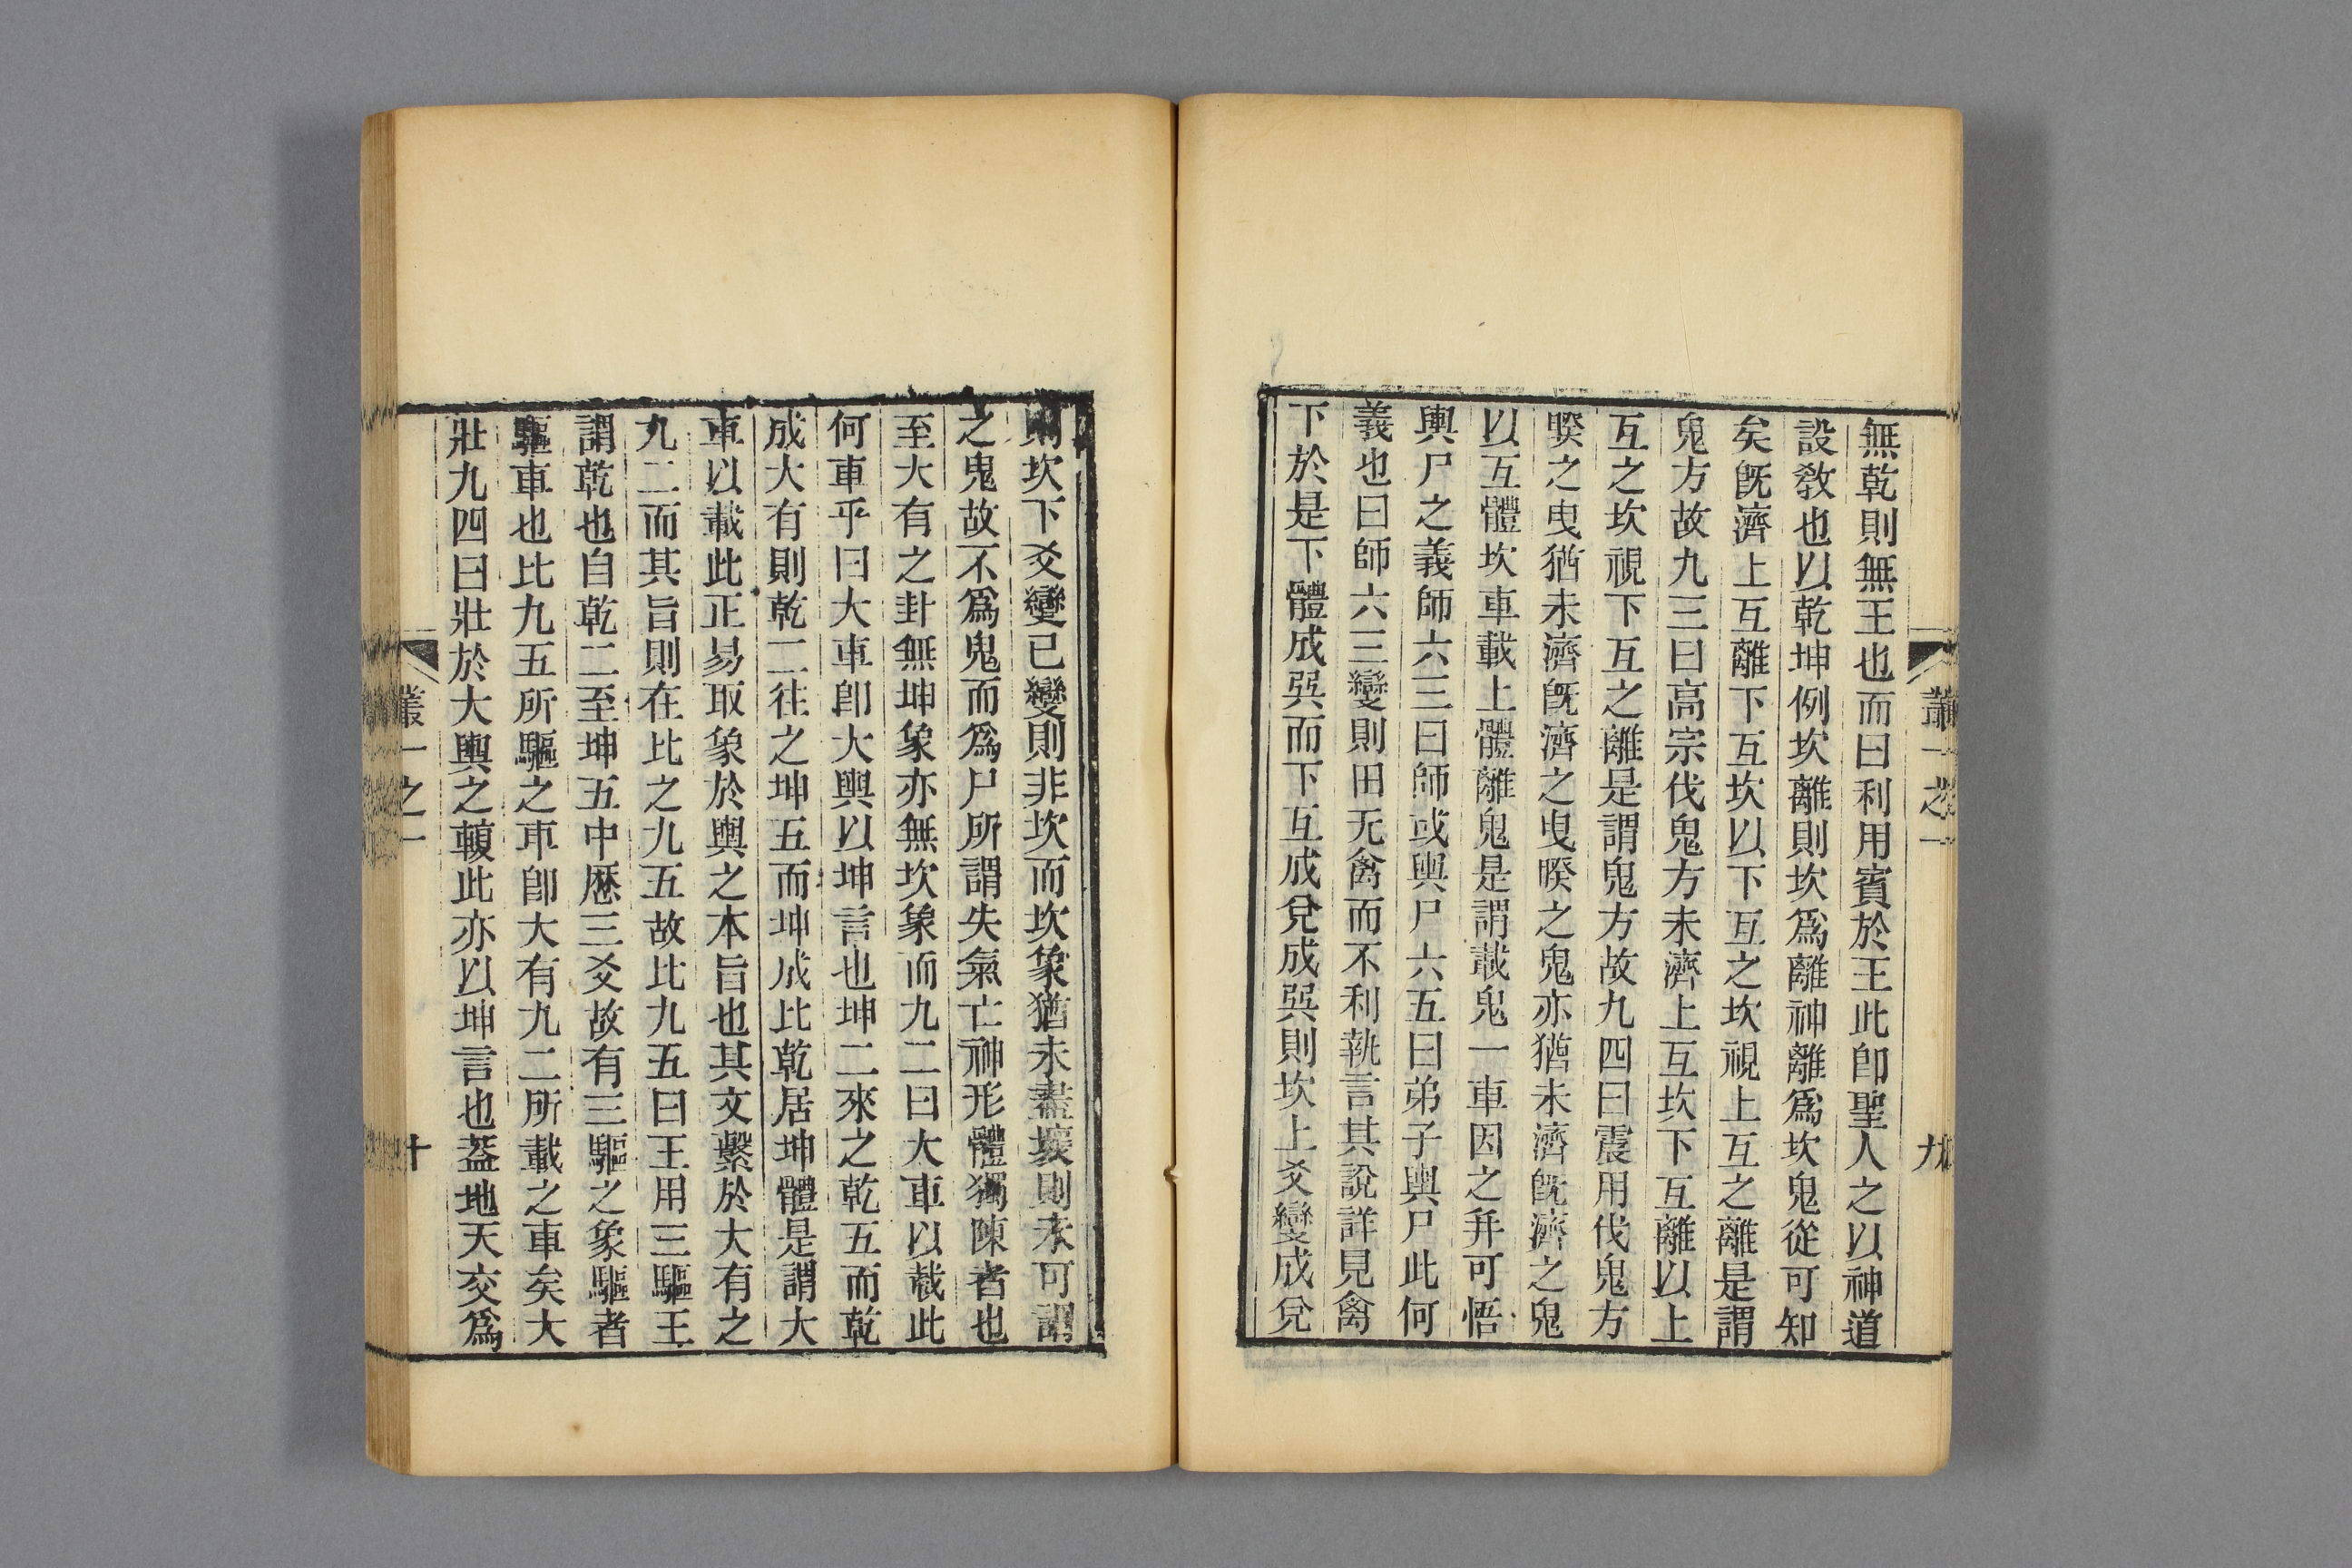 無乾則無王也而曰利用賓於王此卽聖人之以神道
設敎也以乾坤例坎離則坎爲離神離爲坎鬼從可知
矣旣濟上互離下互坎以下互之坎視上互之離是謂
鬼方故九三曰高宗伐鬼方未濟上互坎下互離以上
互之坎視下互之離是謂鬼方故九四曰震用伐鬼方
睽之曳猶未濟旣濟之曳睽之鬼亦猶未濟旣濟之鬼
以互體坎車載上體離鬼是謂載鬼一車因之幷可悟
輿尸之義師六三曰師或輿尸六五曰弟子輿尸此何
義也曰師六三變則田无禽而不利執言其說詳見禽
下於是下體成巽而下互成兌成巽則坎上爻變成兌
叢一之一
九
則坎下爻變已變則非坎而坎象猶未盡壞則未可謂
之鬼故不爲鬼而爲尸所謂失氣亡神形體獨陳者也
至大有之卦無坤象亦無坎象而九二曰大車以載此
何車乎曰大車卽大輿以坤言也坤二來之乾五而乾
成大有則乾二往之坤五而坤成比乾居坤體是謂大
車以載此正易取象於輿之本旨也其文繫於大有之
九二而其旨則在比之九五故比九五曰王用三驅王
謂乾也自乾二至坤五中歷三爻故有三驅之象驅者
驅車也比九五所驅之車卽大有九二所載之車矣大
壯九四曰壯於大輿之輹此亦以坤言也蓋地天交爲
叢一之一
十